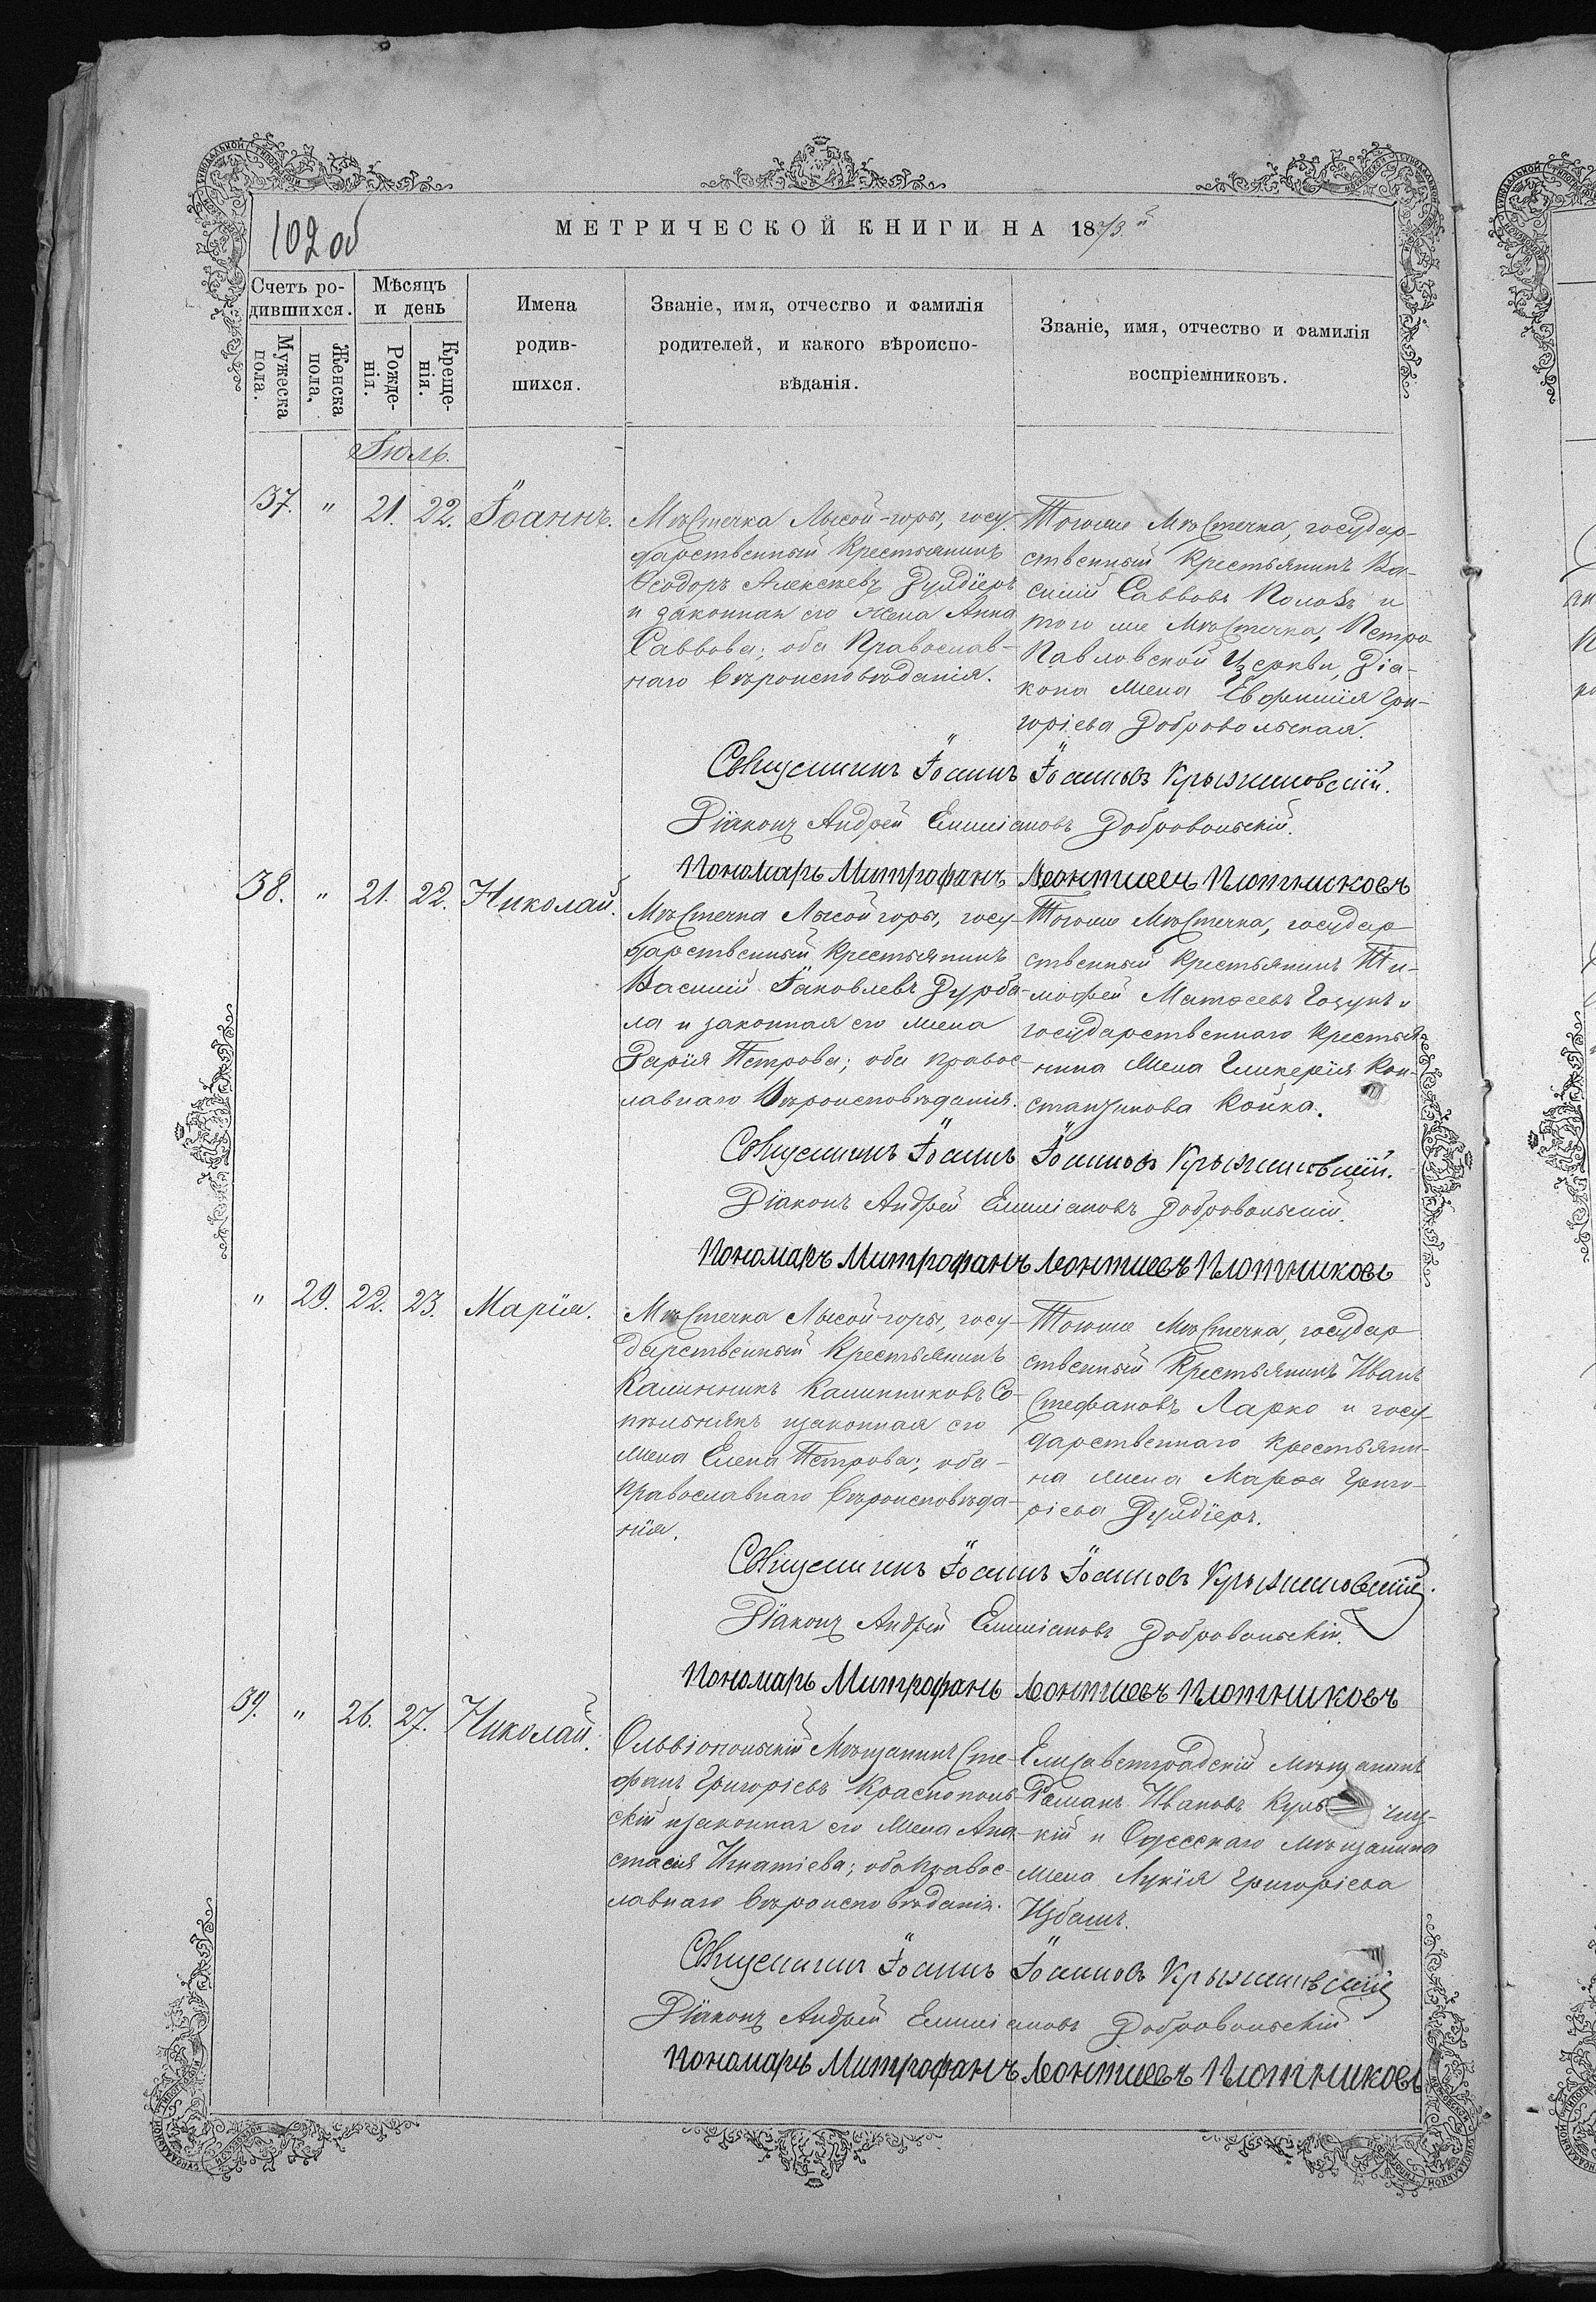 102 об
МЕТРИЧЕСКОЙ КНИГИ НА 1873.й
Счетъ ро-
дившихся.
Мѣсяцъ
и день
Имена
родив-
шихся.
Званіе, имя, отчество и фамилія
родителей, и какого вѣроиспо-
вѣданія.
Званіе, имя, отчество и фамилія
воспріемниковъ.
Мужеска
пола.
Женска
пола,
Рожде-
нія.
Креще-
нія.
Іюль.
37. " 21. 22. Іоаннъ.
Мѣстечка Лысой-горы, госу-
дарственный Крестьянинъ
Ѳеодоръ Алексѣевъ Дулдіеръ
и законная его жена Анна
Саввова; оба Православ-
наго Вѣроисповѣданія.
Тогоже Мѣстечка, государ-
ственный Крестьянинъ Ва-
силій Саввовъ Половъ и
того же Мѣстечка, Петро
Павловской Церкви, Діа-
кона жена Евфимія Гри-
горіева Добровольская.
Священникъ Іоаннъ Іоанновъ Крыжановскій.
Діаконъ Андрей Емиліановъ Добровольскій.
Пономарь Митрофанъ Леонтиевъ Плотниковъ
38. " 21. 22. Николай.
Мѣстечка Лысой горы, госу-
дарственный Крестьянинъ
Василій Іаковлевъ Дурба-
ла и законная его жена
Дарія Петрова; оба Правос-
лавнаго Вѣроисповѣданія.
Тогоже Мѣстечка, государ
ственный Крестьянинъ Ти-
мофей Матѳеевъ и
государственнаго Крестья
нина жена Гликерія Кон-
стантинова Койка.
Священникъ Іоаннъ Іоанновъ Крыжановскій.
Діаконъ Андрей Емиліановъ Добровольскій.
Пономаръ Митрофанъ Леонтиевъ Плотниковъ
" 29. 22. 23. Марія.
Мѣстечка Лысой-горы, госу-
дарственный Крестьянинъ
Калинникъ Калинниковъ Со-
пѣльнякъ изаконная его
жена Елена Петрова; оба
Православнаго Вѣроисповѣда-
нія.
Тогоже Мѣстечка, государ
ственный Крестьянинъ Иванъ
Стефановъ Ларко и госу-
дарственнаго Крестьяни-
на жена Марѳа Григо-
ріева Дулдіеръ.
Священникъ Іоаннъ Іоанновъ Крыжановскій.
Діаконъ Андрей Емиліановъ Добровольскій.
Пономарь Митрофанъ Леонтиевъ Плотниковъ
39. " 26. 27. Николай.
Ольвіопольскій Мѣщанинъ Сте-
фанъ Григоріевъ Краснополь-
скій изаконная его жена Ана-
стасія Игнатіева; оба Правос-
лавнаго Вѣроисповѣданія.
Елисаветградскій мѣщанинъ
Романъ Ивановъ Куль чиц-
кій и Одесскаго мѣщанина
жена Лукія Григоріева
Избашъ.
Священникъ Іоаннъ Іоанновъ Крыжановскій
Діаконъ Андрей Емиліановъ Добровольскій
Пономаръ Митрофанъ Леонтиевъ Плотниковъ